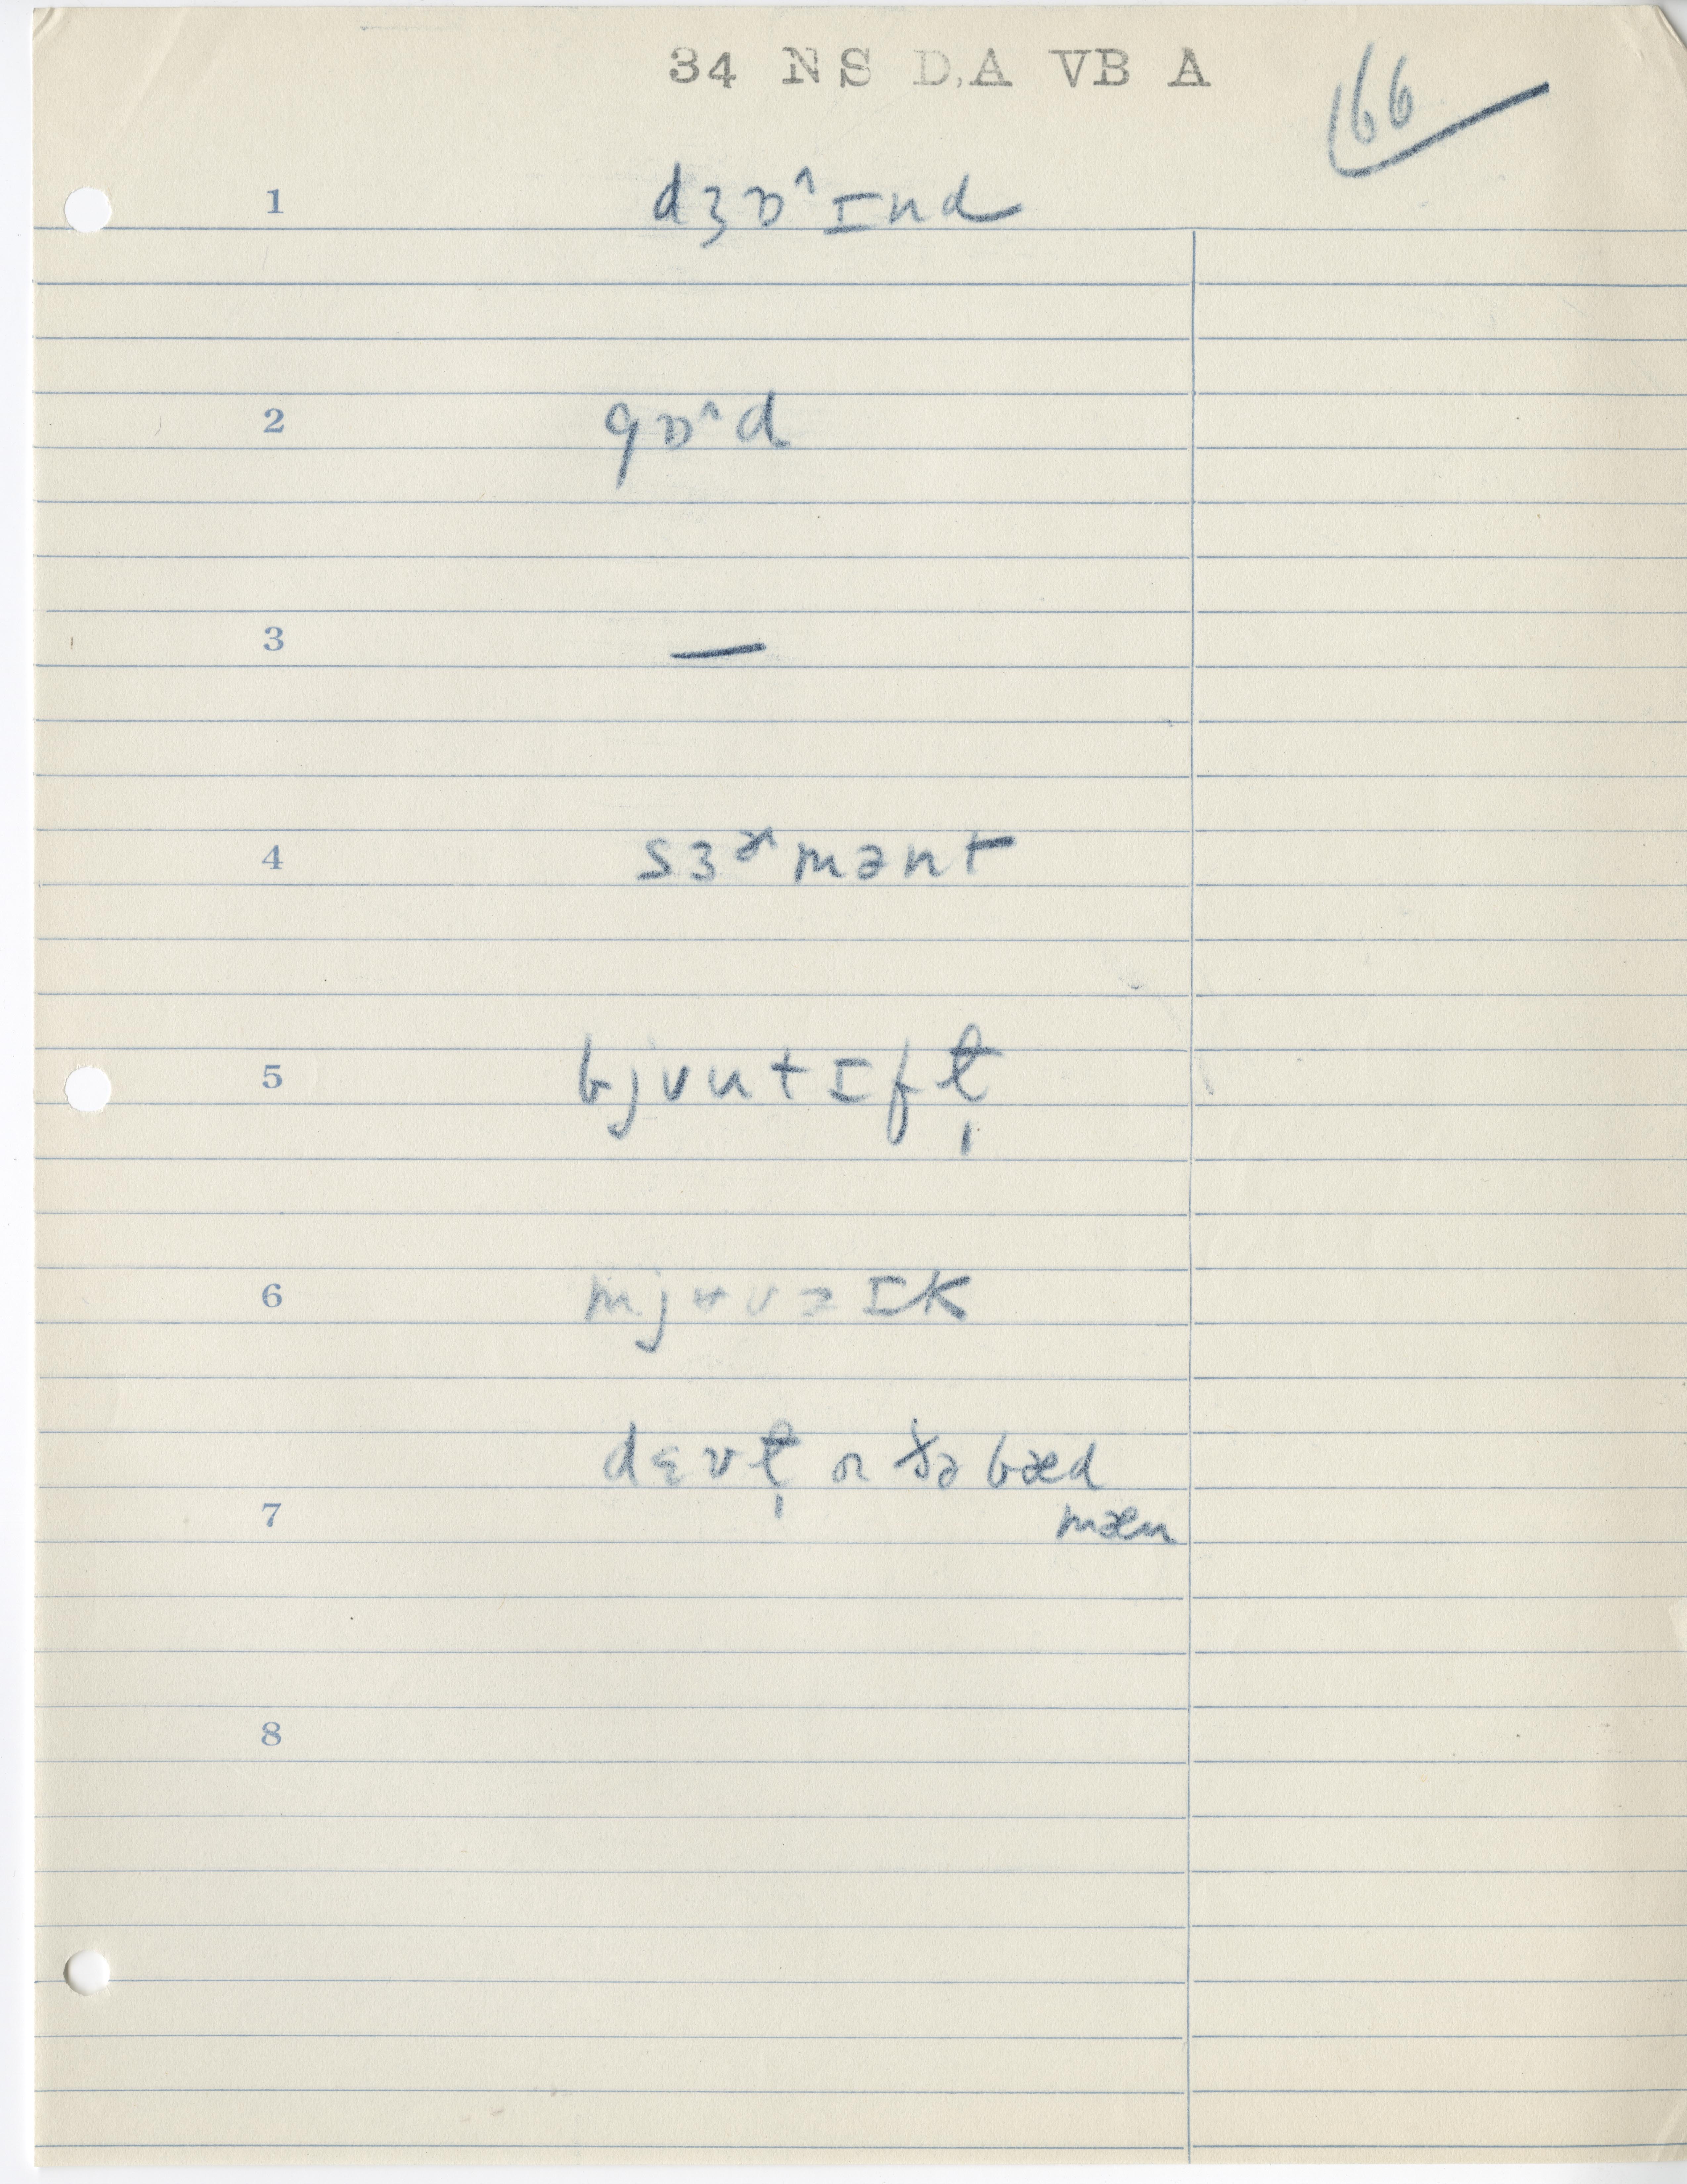 34 NS D,A VB A
166
1 dʒɒ^ɪnd
2 gɒ^d
3 —
4 sɜɚmənt
5 bjʊutɪfɫ̩
6 mjʊuzɪk
dɛvɫ̩ or ðə bæd
7 mæn
8